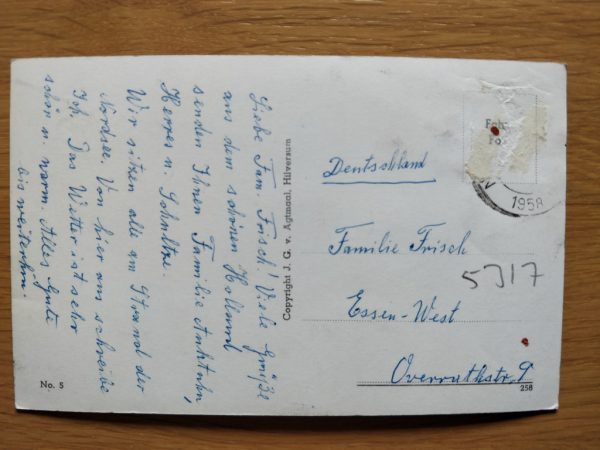 Liebe Fam. Frisch! Viele Grüße
aus dem schönen Holland
senden Ihnen Familie
Herres u. Schultze.
Wir sitzen alle am Strand der
Nordsee. Von hier aus schreibe
Ich. Das Wetter ist sehr
schön u. warm. Alles Gute
bis weiterhin.
No. 5
Copyright J. G. v. Agtmaal, Hilversum
1958
Deutschland
Familie Frisch
5317
Essen-West
Overrathstr. 9
258